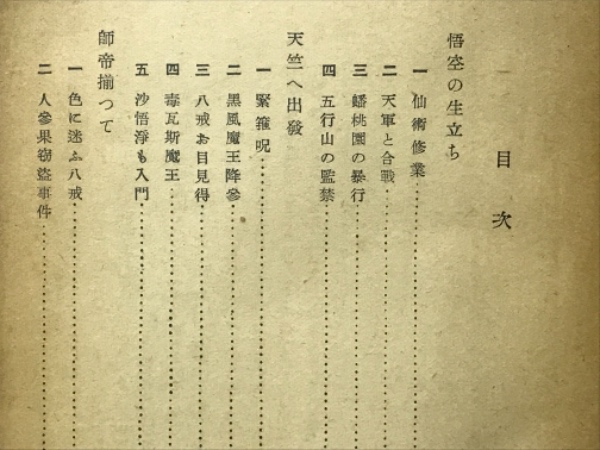 目次
悟空の生立ち
一 仙術修業
二 天軍と合戰
三 蟠桃園の暴行
四 五行山の監禁
天竺へ出發
一 緊箍呪
二 黑風魔王降參
三 八戒お目見得
四 毒瓦斯魔王
五 沙悟淨も入門
師帝揃つて
一 色に迷ふ八戒
二 人參果窃盜事件